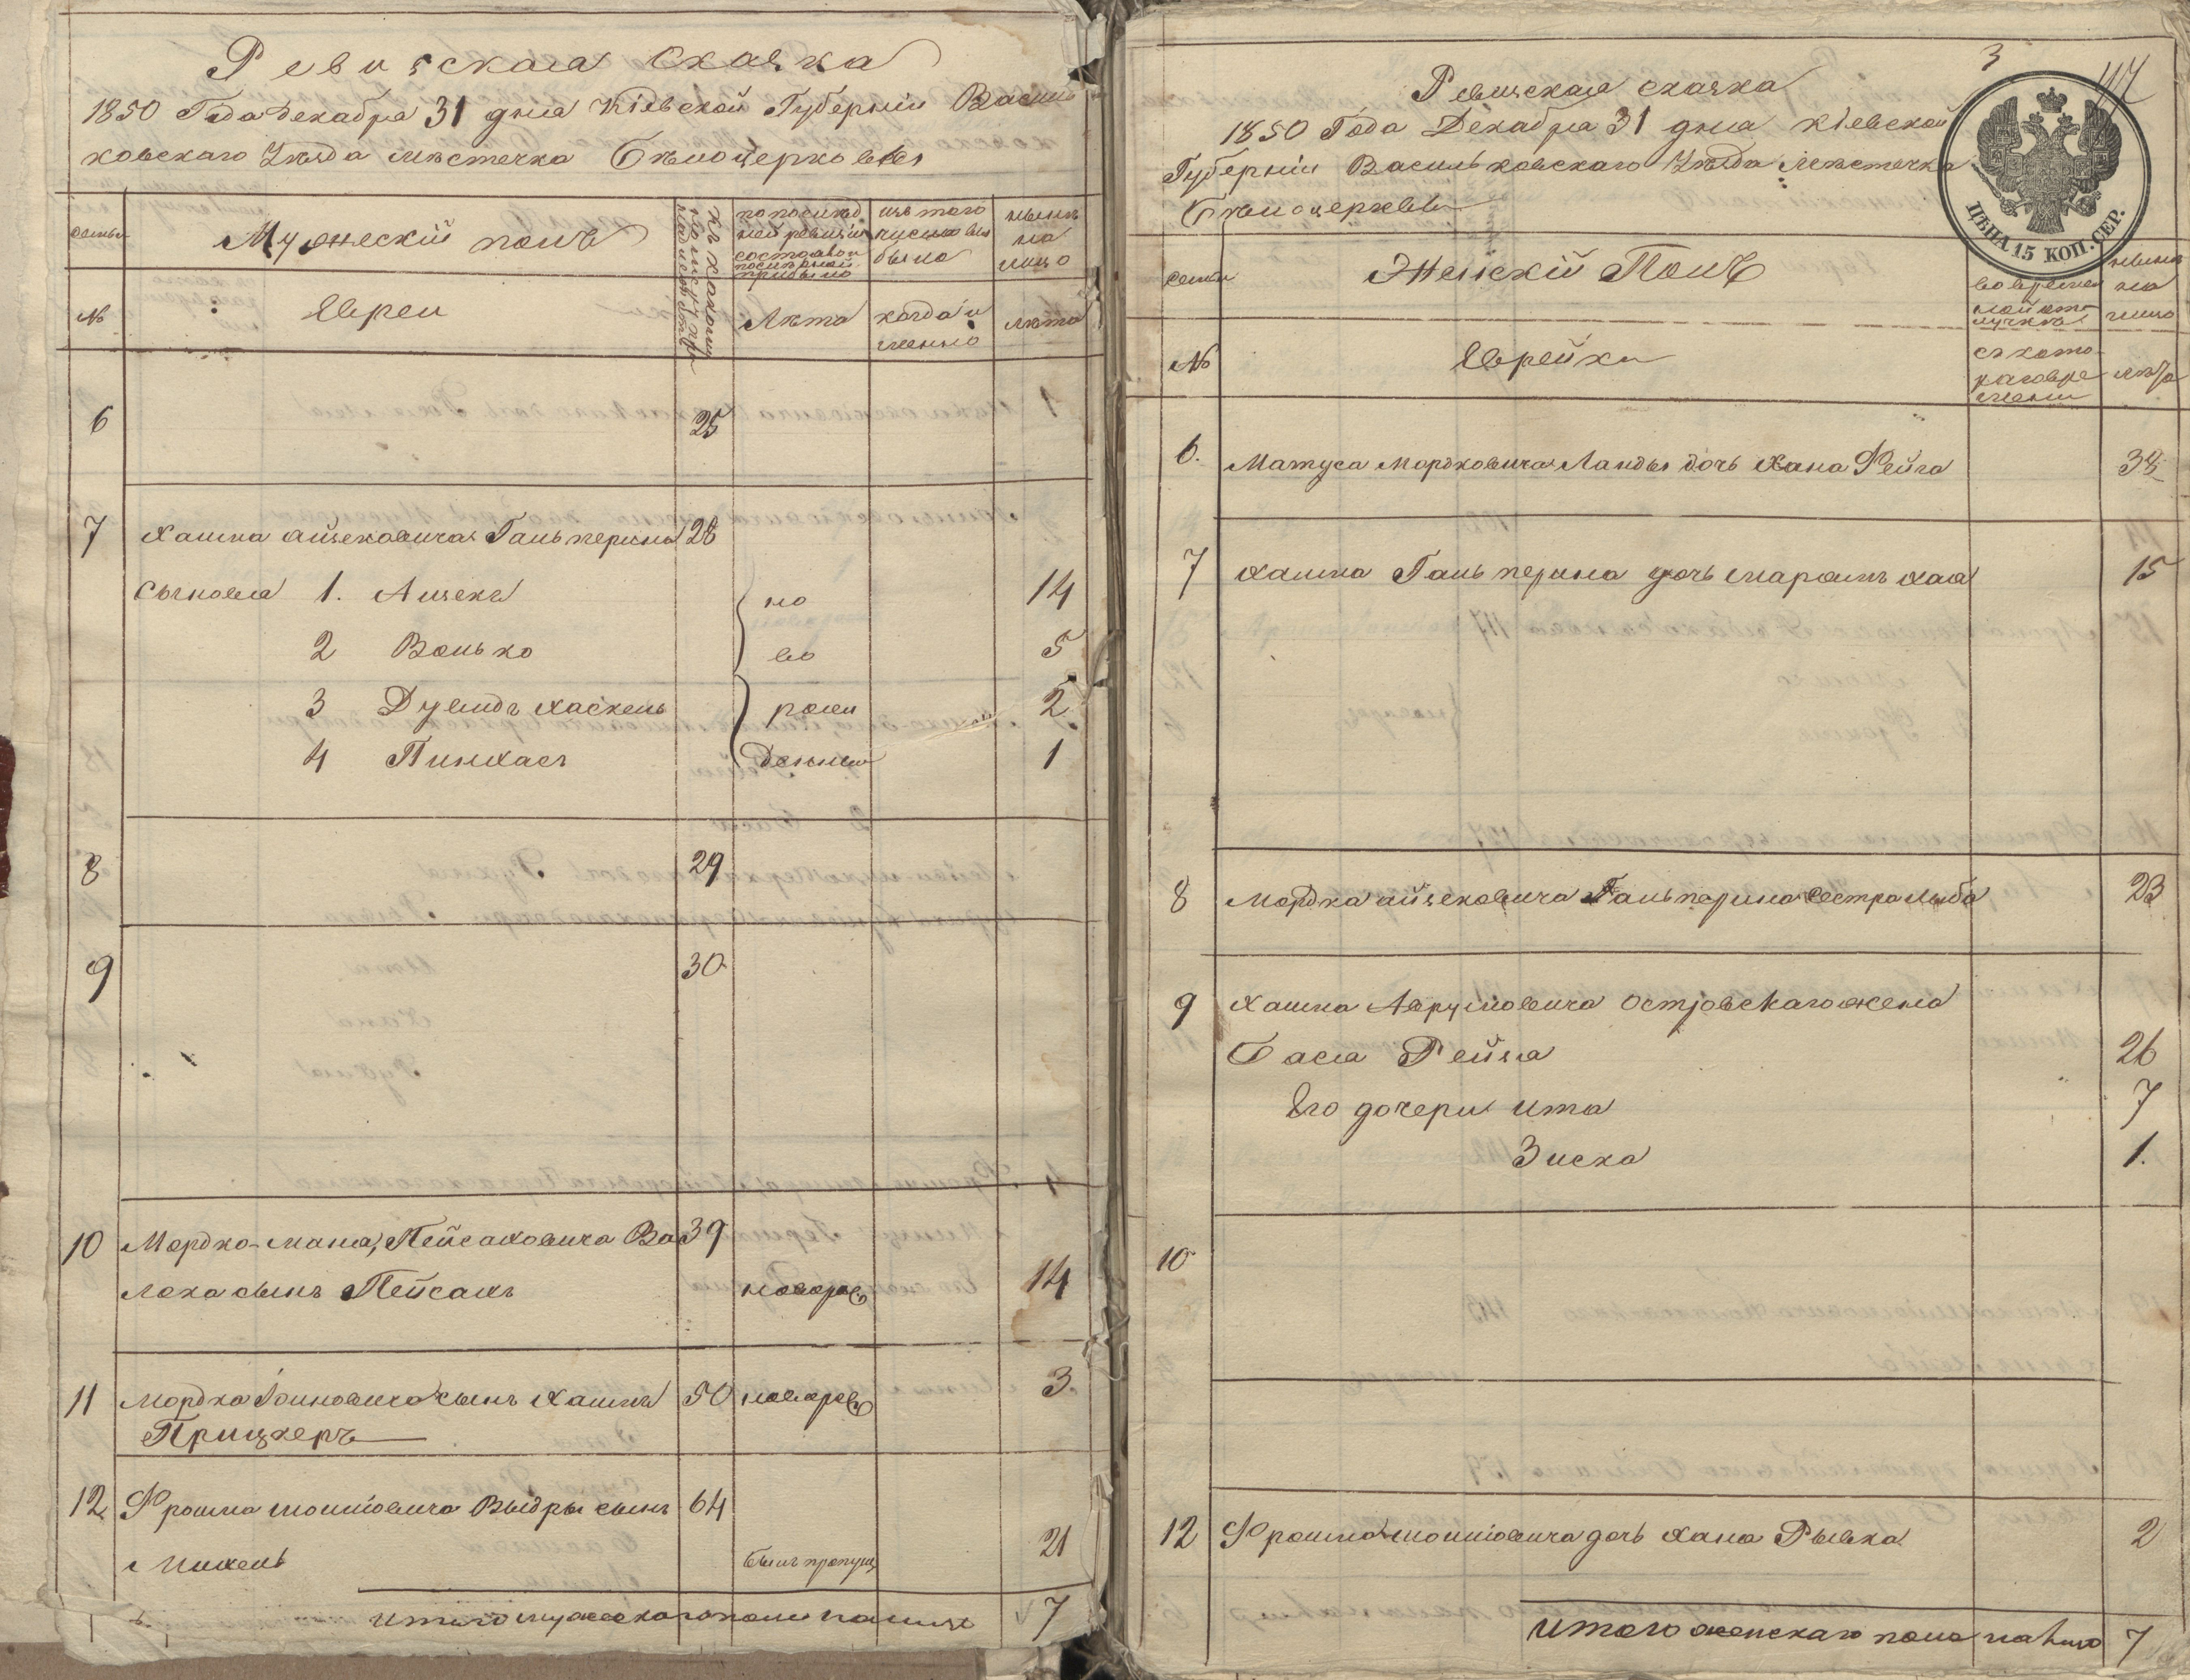 Ревизская Сказка
1850 Года Декабря 31 дня Кіевской Губерніи Василь
ковскаго Уѣзда мѣстечка Бѣлоцерковки
семьи
Мужескій полъ
по послѣд
ней ревизіи
состояло и
послѣ оной
прибыло
изъ того
числа вы
было
нынѣ
на
лицо
№
Евреи
Лѣта
когда и
менно
лѣта
6 25
7 Хаима Айзековича Гальперина 28
Сыновья 1. Айзекъ но 14
2 Волько во 5
3 Дувидъ Хаскель рож 2
4 Пинхасъ денные 1
8 29
9 30
10 Мордко-мана, Пейсаховича Во 39
лоха сынъ Пейсахъ новорож 14
11 Мордка Іойновича сынъ Хаимъ 50 новорож 3.
Прицкеръ
12 Фроима Мошковича Выдры сынъ 64
Михель былъ пропущ 21
Итого мужескаго пола налицо 7
3
Ревизская сказка
1850 Года Декабря 31 дня Кіевской
Губерніи Васильковскаго Уѣзда Мѣстечка
Бѣлоцерковки
ЦѢНА 15 КОП. СЕР.
семьи
Женскій Полъ
во времен
ной от
лучкѣ
нынѣ
на
лицо
№
Еврейки
съ кото
раго вре
мени
лѣта
6. Матуса Мордковича Ланды дочь Хана Фейга 38
7 Хаима Гальперина дочь Маріамъ Хая 15
8 Мордка Айзековича Гальперина сестра Лыба 23
9 Хаима Аврумовича Островскаго жена
Бася Рейза 26
Его дочери Ита 7
Зиска 1.
10
12 Фроима Мошковича дочь Хана Рывка 2
Итого женскаго пола на лицо 7